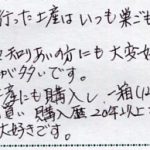 行った土産はいつも巣ごも
知りあいの方にも大変好
が多いです。
土産にも購入し、一箱(12
買い 購入歴20年以上
大好きです。